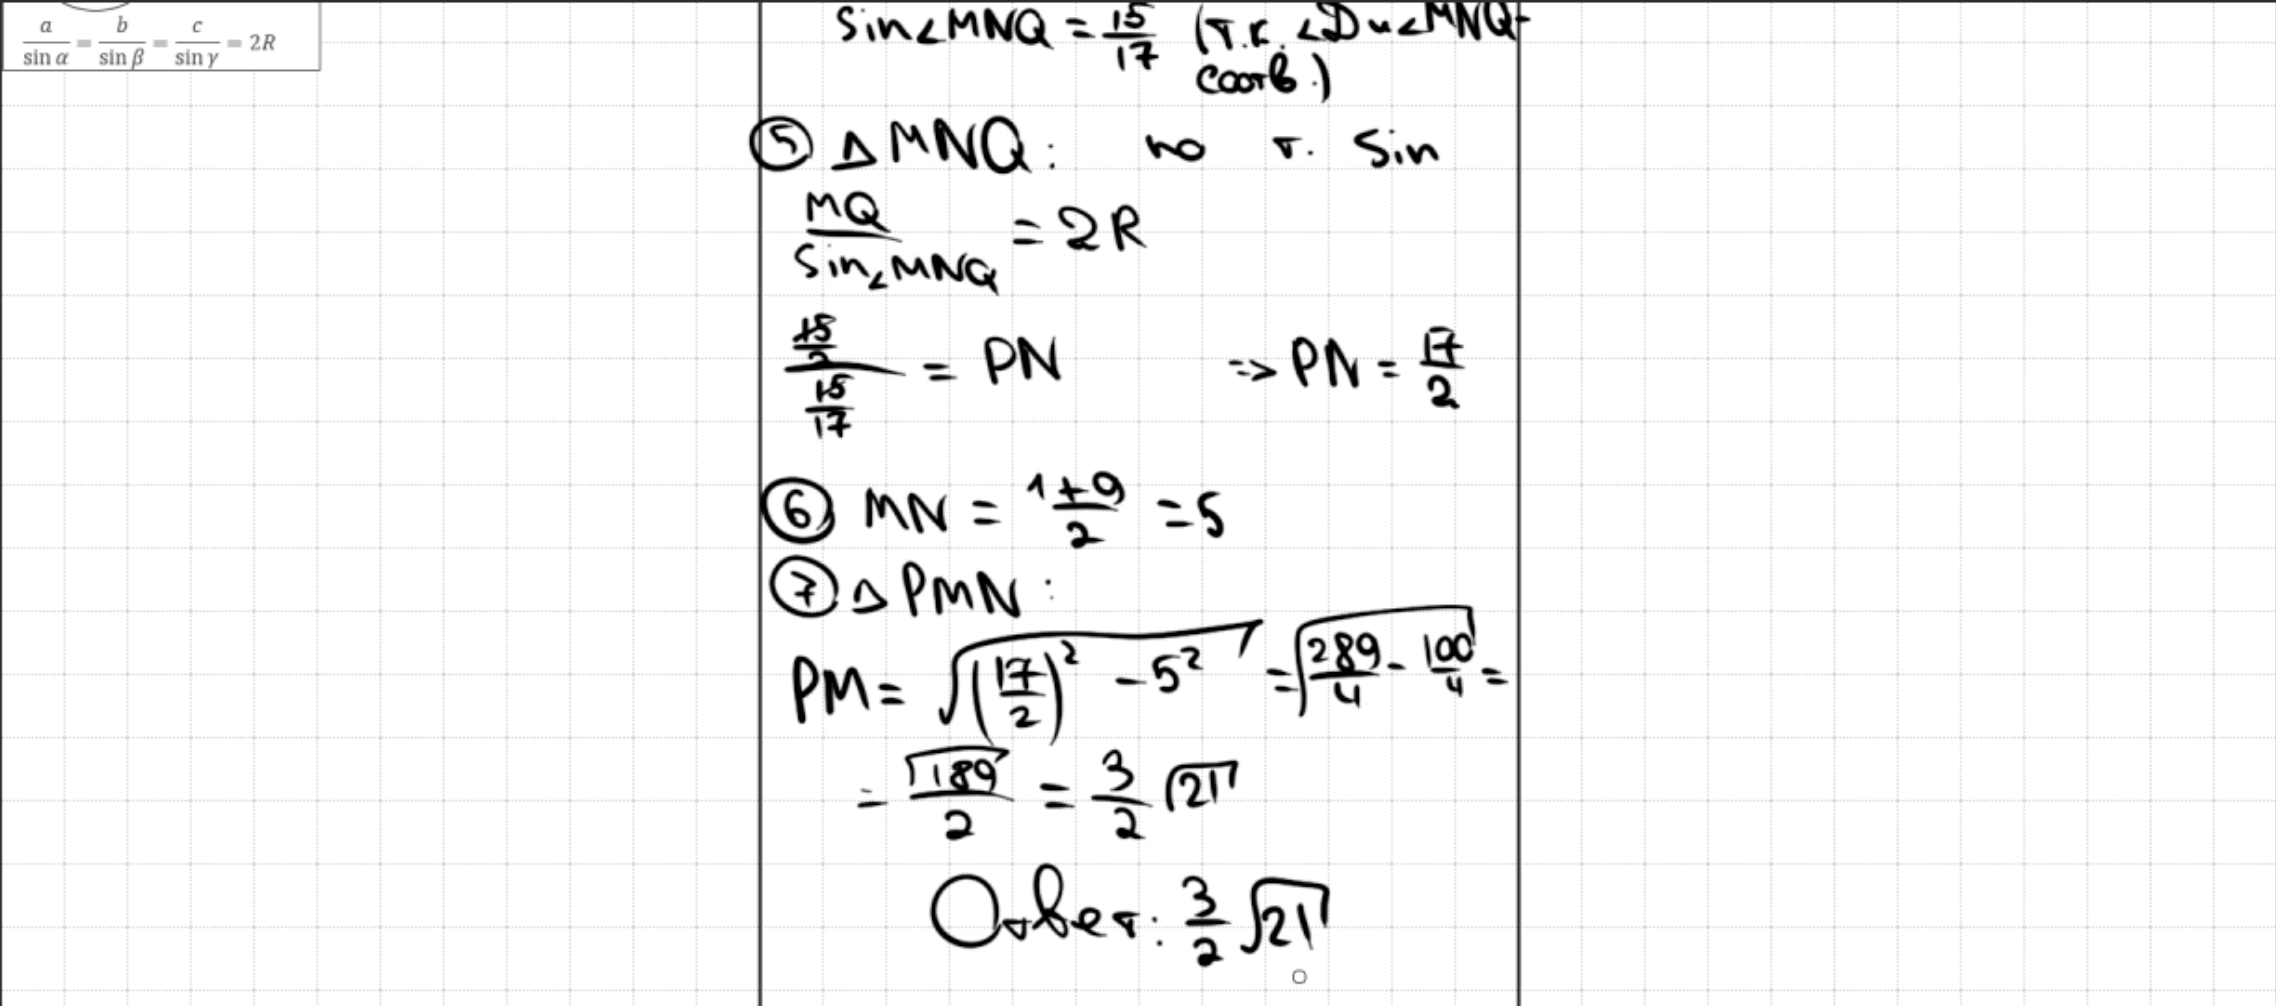 a/sin α = b/sin β = c/sin γ = 2R
sin∠MNQ = 15/17 (т.к. ∠D и ∠MNQ-
соотв.)
⑤ △MNQ: по т. sin
MQ/sin∠MNQ = 2R
(15/2)/(15/17) = PN => PN = 17/2
⑥ MN = (1+9)/2 = 5
⑦ △PMN:
PM = √((17/2)² - 5²) = √(289/4 - 100/4) =
= √189/2 = 3/2 √21
Ответ: 3/2 √21